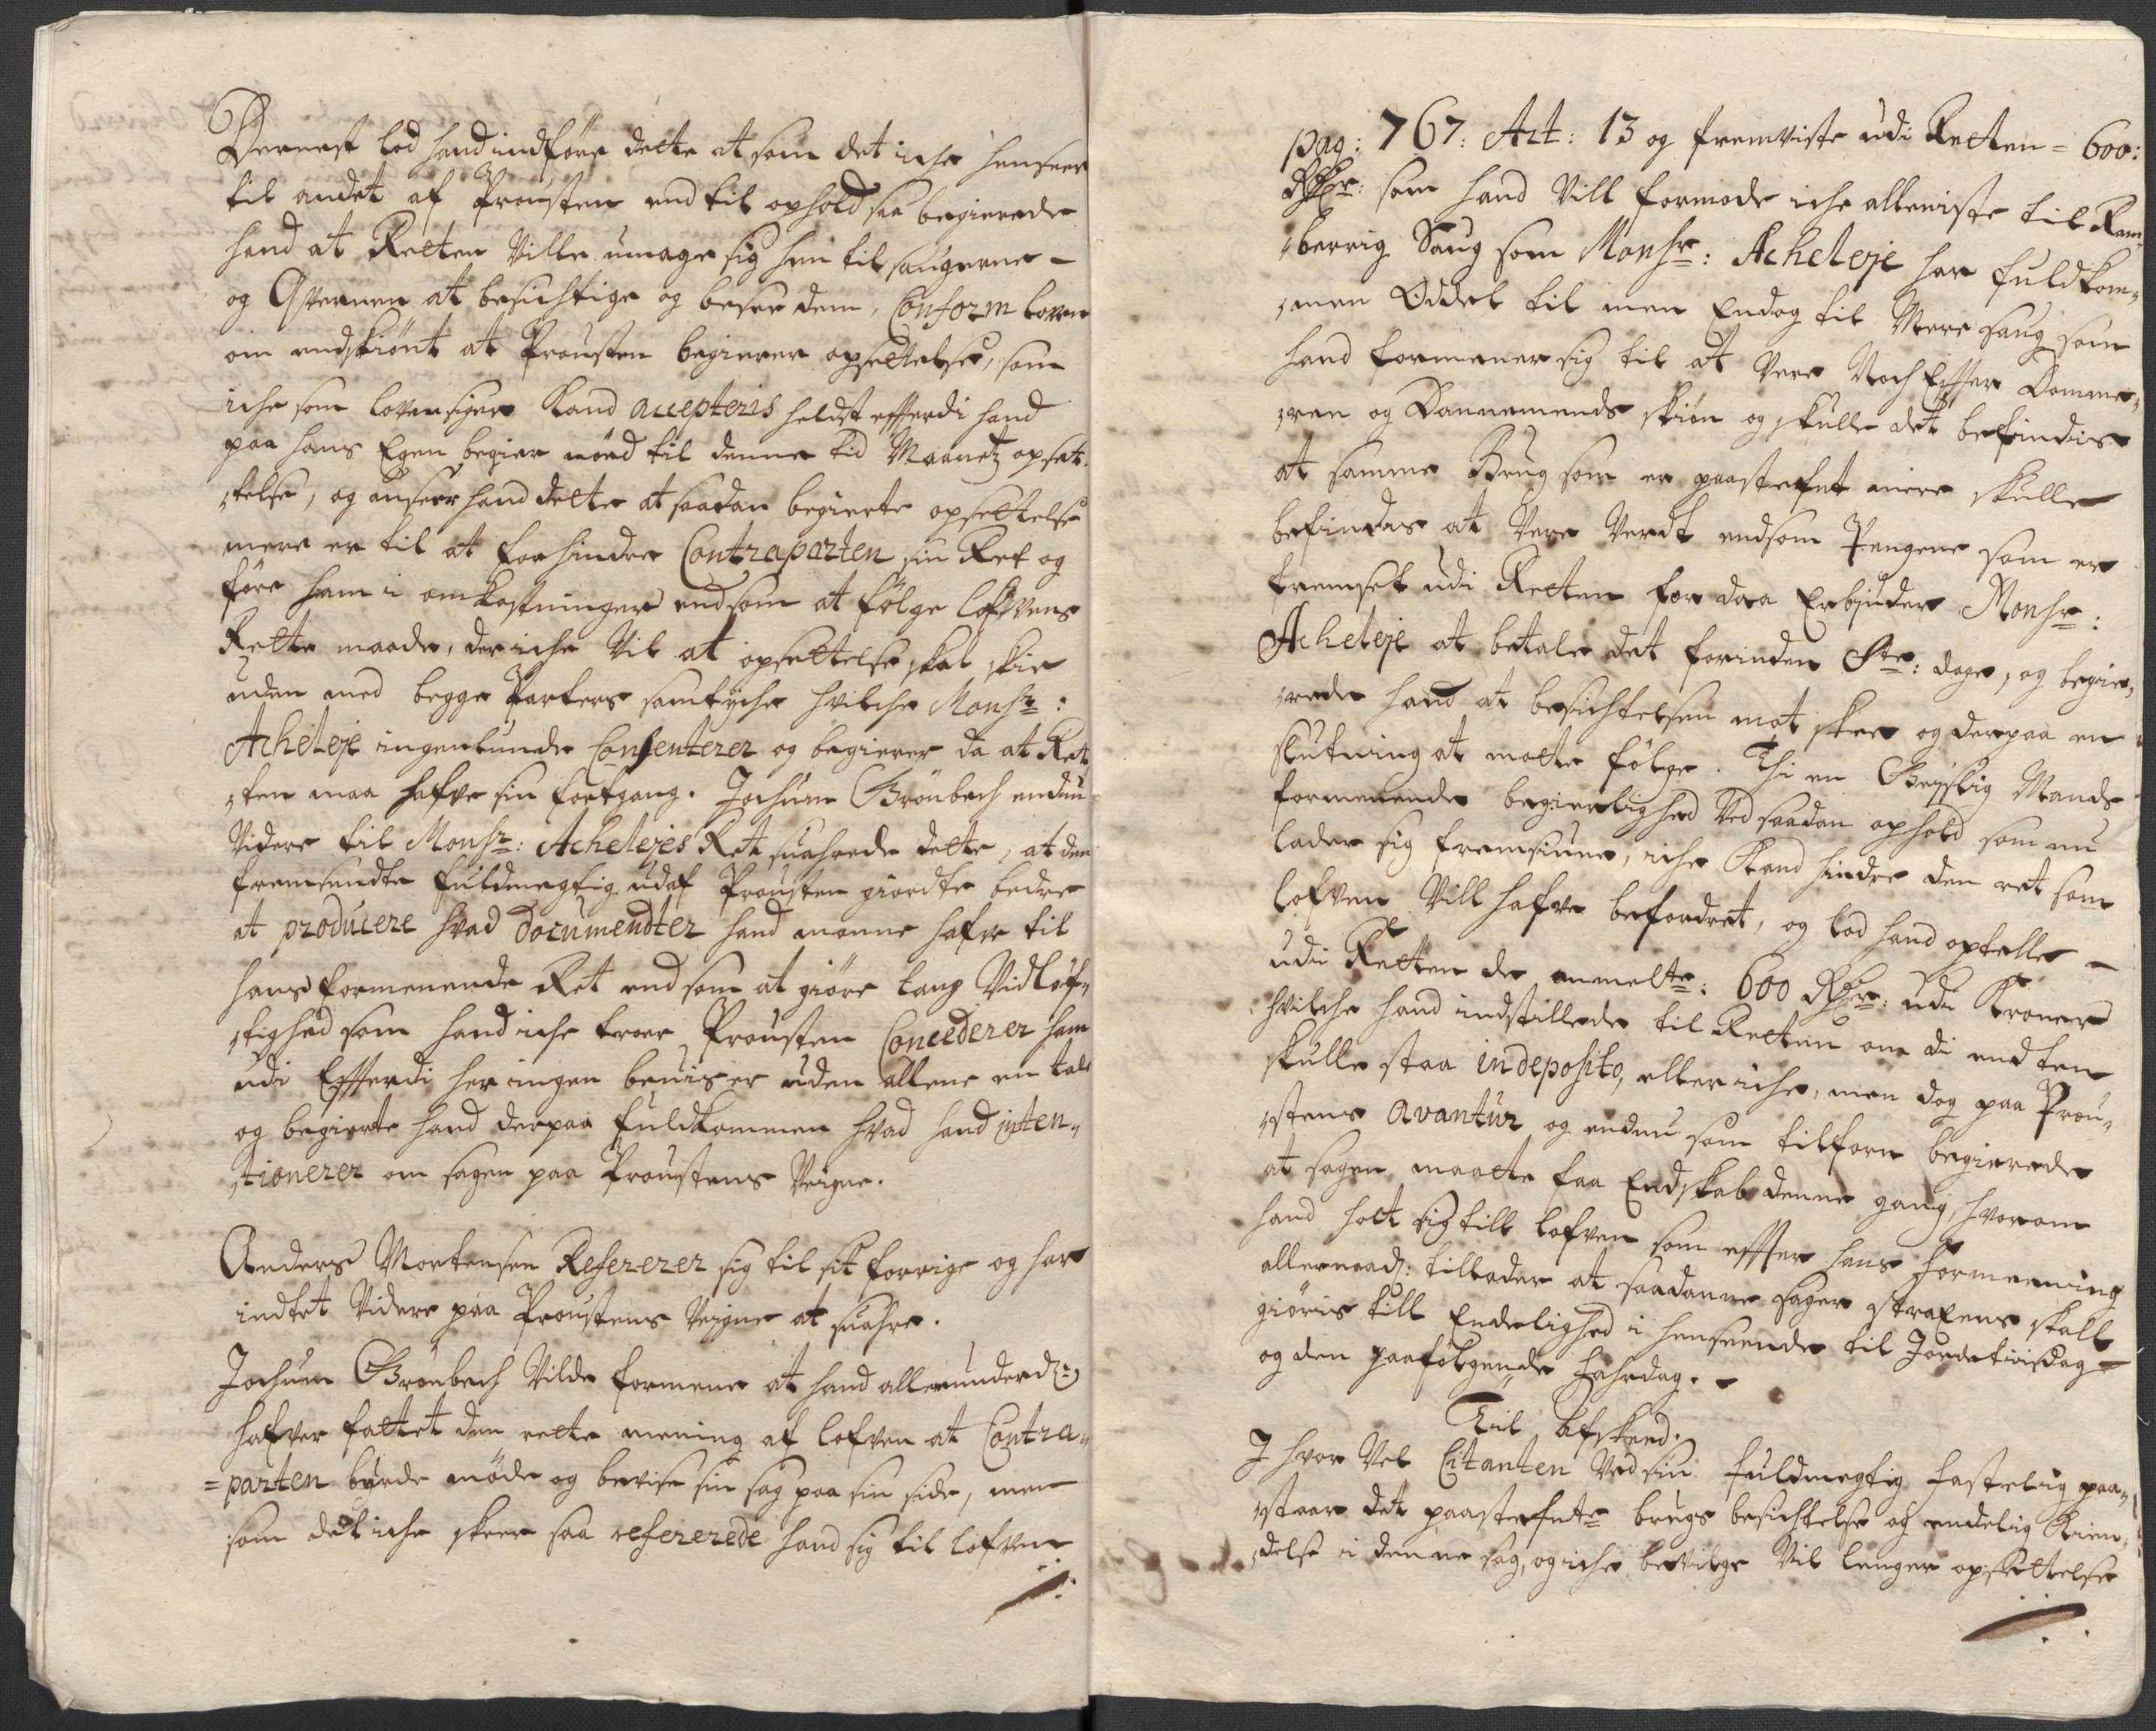 Dernest lod hand indføre dette at som det iche henseer
til andet af Prousten end til ophold saa begierede
hand at Retten Ville umage sig hen til saugerne –
og Qvernen at besichtige og besee dem, Conform loven
om endskiønt at Prousten begierer opsettelse, som
iche som loven siger Kand accepteris heldst efterdi hand
paa hans Egen begier nød til denne tid Maanetz opset¬
¬telse, og anseer hand dette at saadan begierte opsettelse
mere er til at forhindre Contraparten sin Ret og
føre ham i omkostninger end som at følge lofvens
Rette maade, der iche Vil at opsettelse skal skie
uden med begge Parters samtyche hvilche Monsr:
Acheleje ingenlunde Consenterer og begierer da at Ret
¬ten maa hafve sin fortgang. Jochum Grönbech endnu
Videre til Monsr: Achelejes Ret suahrede dette, at den
fremsendte fuldmegtig udaf Prousten giorde bedre
at producere hvad documendter hand monne hafve til
hans formenende Ret end som at giøre lang Vidløf¬
¬tighed som hand iche troer Prousten Concederer ham
udi Efterdi her ingen beviis er uden allene en tale
og begierte hand derpaa fuldkommen hvad hand inten¬
¬tionerer om sagen paa Proustens Veigne.
Anders Mortensen Refererer sig til sit forrige og har
indtet Videre paa Proustens Veigne at suahre.
Jochum Grönbech Vilde formene at hand allerunderd:
hafver fattet den rette mening af lofven at Contra¬
=parten burde møde og bevise sin sag paa sin side, men
som det iche skeer saa refererede hand sig til lofven
pag: 767: Art: 13 og fremviste udi Retten = 600:
Rdr: som hand Vill formode iche alleniste til Ram¬
¬berrig Saug som Monsr: Acheleje har fuldkom¬
¬men Oddel til men Endog til Mere saug som
hand formener sig til at Vere Noch Efter Domme¬
¬ren og Dannemends skiøn og skulle det befindis
at samme Brug som er paastefnt mere skulle
befindes at Vere Verdt endsom Pengene som er
fremset udi Retten for daa Erbyder Monsr:
Acheleje at betale det forinden 8te: dage, og begie¬
¬rede hand at besichtelsen mot skee og derpaa en
slutning at motte følge. Thi en Geistlig Mands
formenende begierlighed Ved saadan ophold som nu
lader sig fremsiune, iche Kand hindre den ret som
lofven Vill hafve befordret, og lod hand optelle –
udi Retten de anmelte: 600 Rdr: udi Kroner
hvilche hand indstillede til Retten om di endten
skulle staa in deposito, eller iche, men dog paa Prou¬
¬stens avantur og endnu som tilforn begierede
at sagen maatte faa Endskab denne gang, hvorom
hand holt sig till lofven som efter hans formeening
allernaad: tillader at saadanne sager straxens skall
giøris till Endelighed i henseende til Jordetvistdag –
og den paafølgende fahrdag. –
Til Afskeed.
I hvor Vel Citanten Ved sin fuldmegtig fastelig paa¬
¬staar det paastefnte brugs besichtelse og endelig Kien¬
¬delse i denne sag, og iche bevilge Vil lenger opsettelse